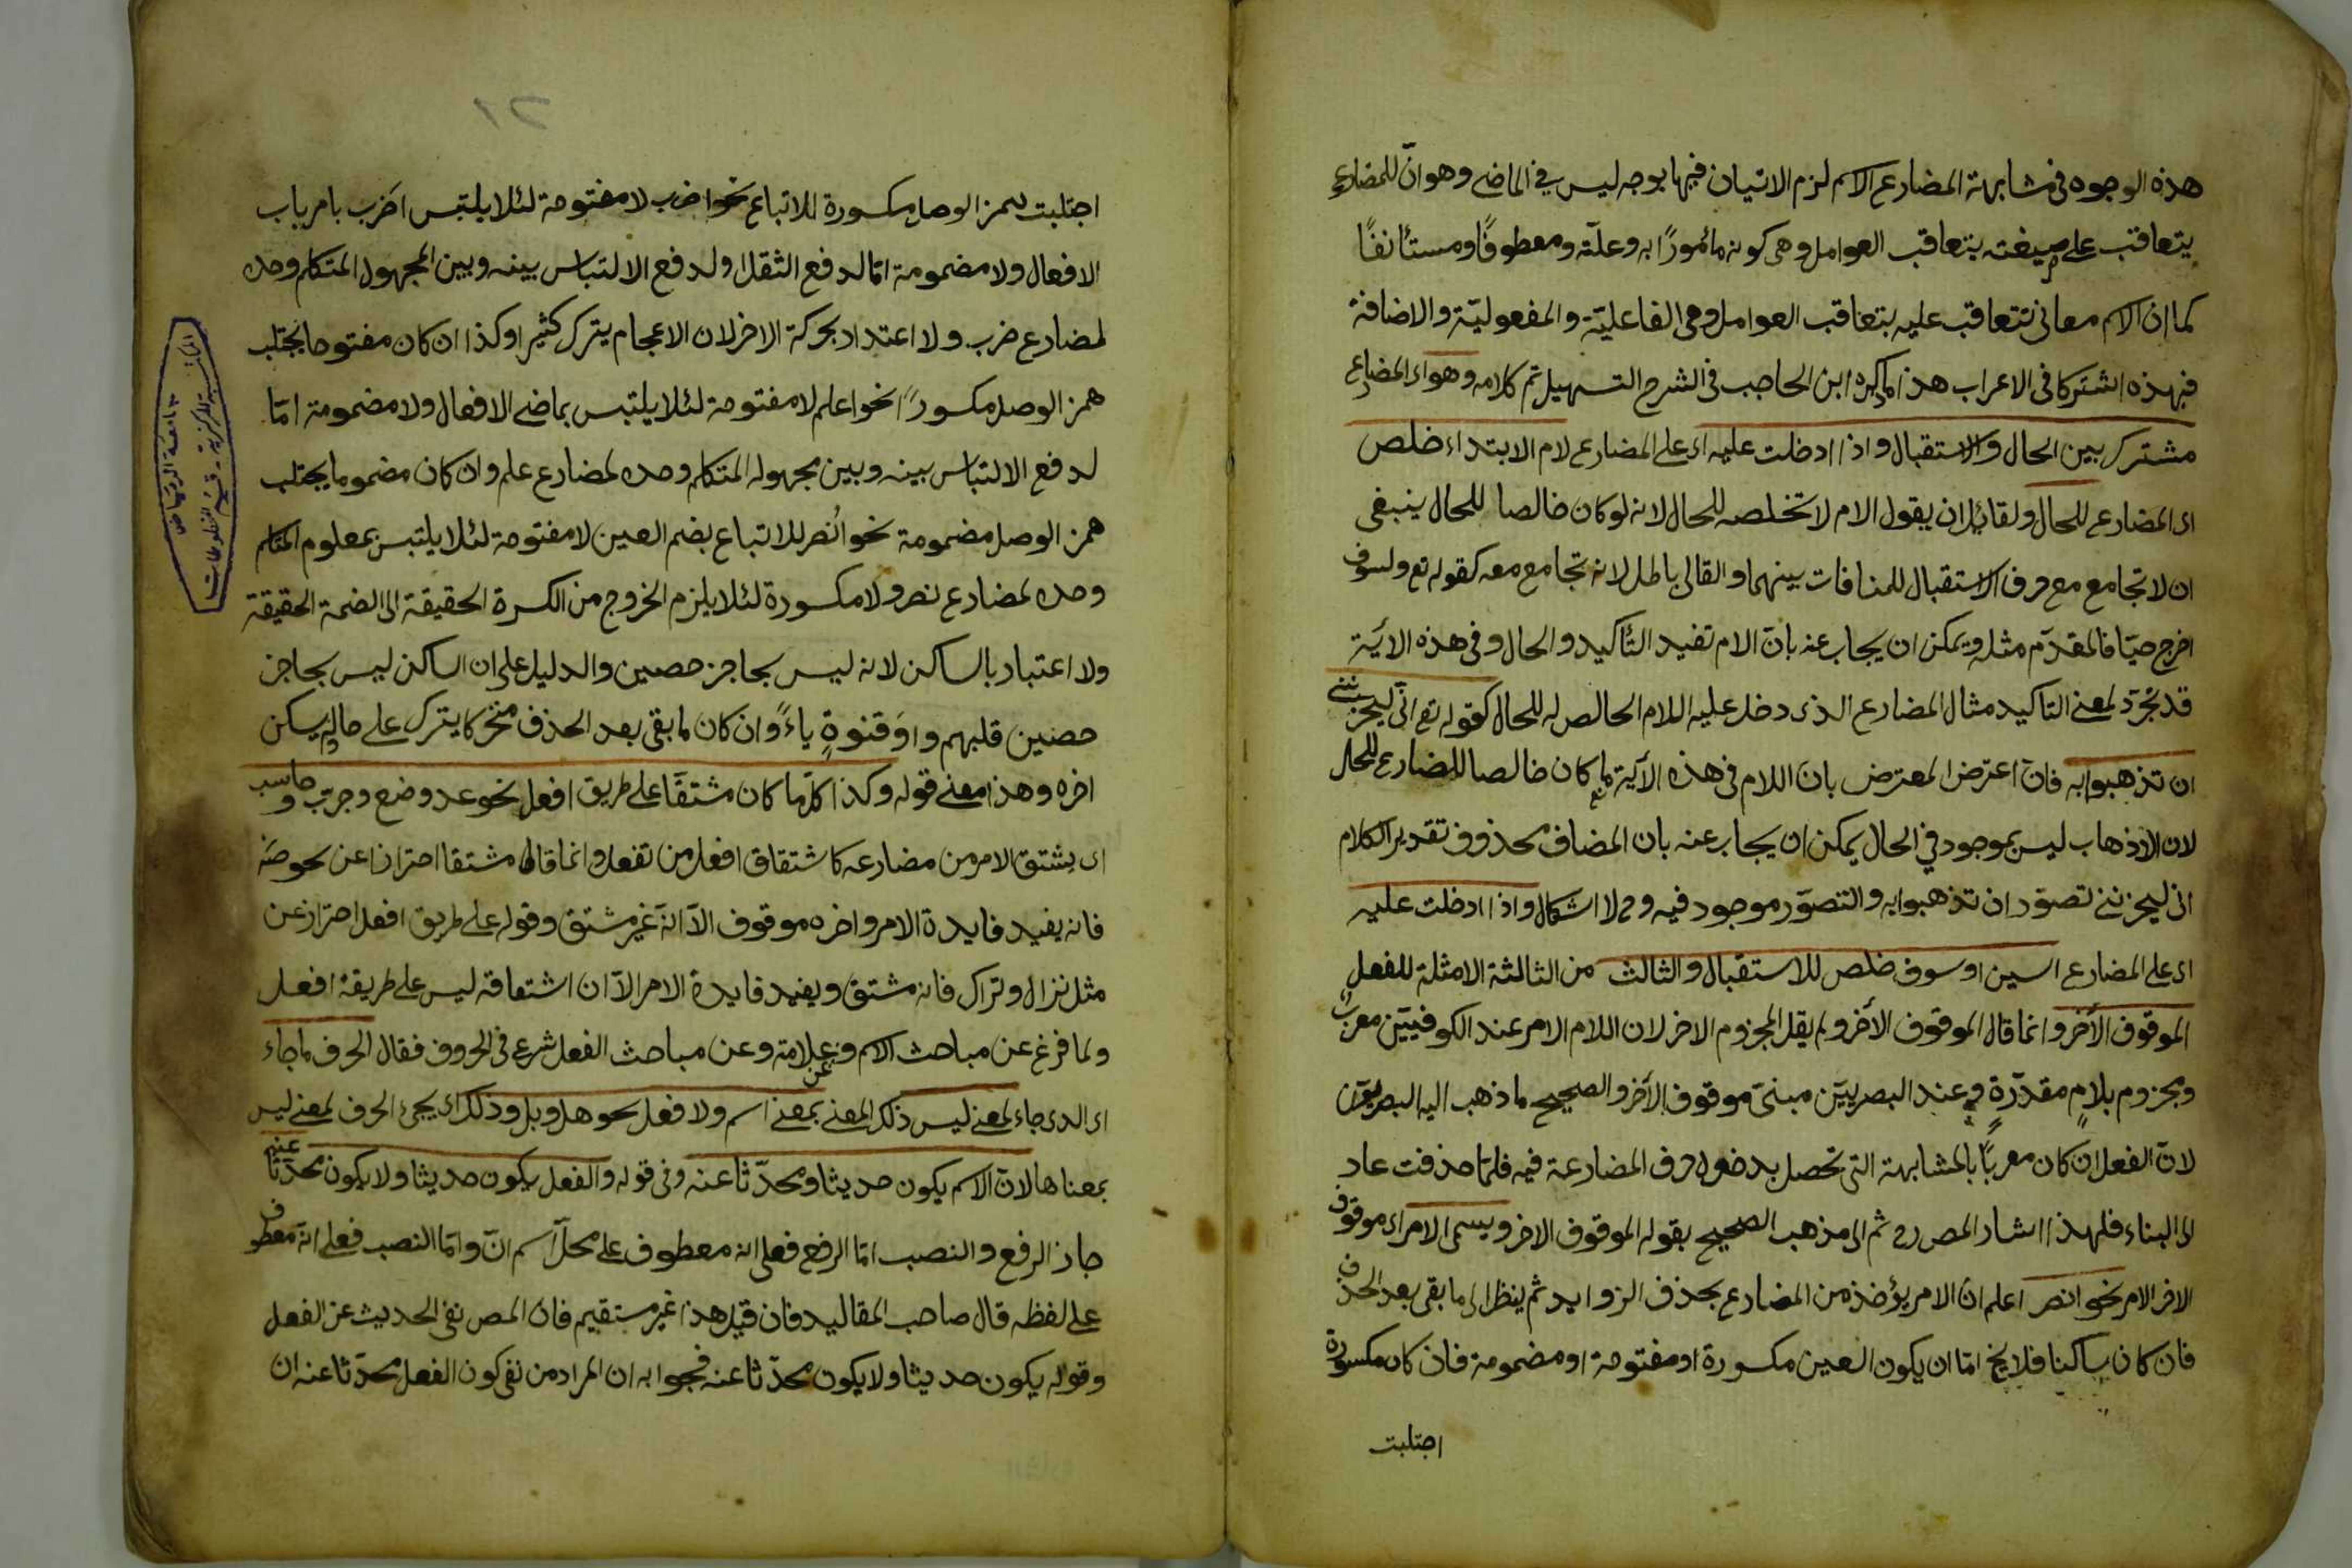 هذه الوجوه فى مشابهة المضارع الاسم لزم الاتيان فيها بوجه ليس في الماضى وهو انّ للمضارع
يتعاقب على صيغته بتعاقب العوامل وهى كونه مأمورًا به وعلّة ومعطوفًا ومستأنفًا
كما ان الاسم معانى تتعاقب عليه بتعاقب العوامل وهى الفاعليّة والمفعوليّة والاضافة
فبهذه اشتركا فى الاعراب هذا ما ذكره ابن الحاجب فى الشرح التسهيل تم كلامه وهو اى المضارع
مشترك بين الحال والاستقبال واذا ادخلت عليه اى على المضارع لام الابتداء خلص
اى المضارع للحال ولقائل ان يقول الام لا تخلصه للحال لانه لو كان خالصا للحال ينبغى
ان لا تجامع مع حرف الاستقبال للمنافات بينهما والتالى باطل لانه تجامع معه كقوله تع ولسوف
اخرج حيّا فالمقدّم مثله ويمكن ان يجاب عنه بانّ الام تفيد التّأكيد والحال وفى هذه الاية
قد تجرّد لمعنى التاكيد مثال المضارع الذى دخل عليه اللام الخالص له للحال كقوله تع انّى ليحزننى
ان تذهبوا به فان اعترض المعترض بان اللام فى هذه الاية ما كان خالصا للمضارع للحال
لان الاذهاب ليس بموجود في الحال يمكن ان يجاب عنه بان المضاف محذوف تقدير الكلام
انى ليحزننى تصوّر ان تذهبوا به والتصوّر موجود فيه وح لا اشكال واذا ادخلت عليه
اى على المضارع السين او سوف خلص للاستقبال والثالث من الثالثة الامثلة للفعل
الموقوف الأخر وانما قال الموقوف الأخر ولم يقل المجزوم الاخر لان اللام الامر عند الكوفيين معربٌ
ومجزوم بلامٍ مقدّرةٍ وعند البصريين مبنىّ موقوف الأخر والصحيح ما ذهب اليه البصريون
لانّ الفعل ان كان معربًا بالمشابهة التى تحصل بدخول حرف المضارعة فيه فلمّا حذفت عاد
الى البناء فلهذا اشار المص رح ثم الى مذهب الصحيح بقوله الموقوف الاخر ويسمى الامر اى موقوف
الاخر الامر نحو انصر اعلم ان الامر يؤخذ من المضارع بحذف الزوايد ثم ينظر الى ما بقى بعد الحذف
فان كان ساكنا فلا يخ امّا ان يكون العين مكسورة او مفتوحة او مضمومة فان كان مكسورة
اجتلبت
اجتلبت همز الوصل مكسورة للاتباع نحو اضرب لا مفتوحة لئلا يلتبس اضرب بامر باب
الافعال ولا مضمومة امّا لدفع الثقل او لدفع الالتباس بينه وبين المجهول المتكلم وحده
لمضارع ضرب ولا اعتداد بحركة الاخر لان الاعجام يترك كثيرا وكذا ان كان مفتوحا يجتلب
همز الوصل مكسورًا نحو اعلم لا مفتوحة لئلا يلتبس بماضى الافعال ولا مضمومة امّا
لدفع الالتباس بينه وبين مجهول المتكلم وحده لمضارع علم وان كان مضموما يجتلب
همز الوصل مضمومة نحو اُنصر للاتباع بضم العين لا مفتوحة لئلا يلتبس بمعلوم المتكلم
وحده لمضارع نصر ولا مكسورة لئلا يلزم الخروج من الكسرة الحقيقة الى الضمة الحقيقة
ولا اعتبار بالساكن لانه ليس بحاجز حصين والدليل على ان الساكن ليس بحاجز
حصين قلبهم واوَ قنوةٍ ياءً وان كان ما بقى بعد الحذف متحركا يترك على حاله ويسكن
اخره وهذا معنى قوله وكذا كلّ ما كان مشتقّا على طريق افعل نحو عد وضع وجرّب وحاسب
اى يشتق الامر من مضارعه كاشتقاق افعل من تفعل وانما قال مشتقا احترازا عن نحو صَه
فانه يفيد فايدة الامر واخره موقوف الاّ انّه غير مشتق وقوله على طريق افعل احتراز عن
مثل نزال وتراك فانه مشتق ويفيد فايدة الامر الاّ ان اشتقاقه ليس على طريقة افعل
ولما فرغ عن مباحث الاسم وعلامته وعن مباحث الفعل شرع فى الحروف فقال الحرف ما جاء
اى الذى جاء لمعنى ليس ذلك المعنى بمعنى اسم ولا فعل نحو هل وبل وذلك اى يجىء الحرف لمعنى ليس
بمعناها لانّ الاسم يكون حديثا ومحدّثا عنه وفى قوله والفعل يكون حديثا ولا يكون محدّثا عنه
جاز الرفع والنصب امّا الرفع فعلى انه معطوف على محلّ اسم انّ وامّا النصب فعلى انّه معطوف
على لفظه قال صاحب المقاليد فان قيل هذا غير مستقيم فان المص نفى الحديث عن الفعل
وقوله يكون حديثا ولا يكون محدّثا عنه فجوابه ان المراد من نفى كون الفعل محدّثا عنه ان
المكتبة المركزية - قسم المخطوطات
جامعة الرياض